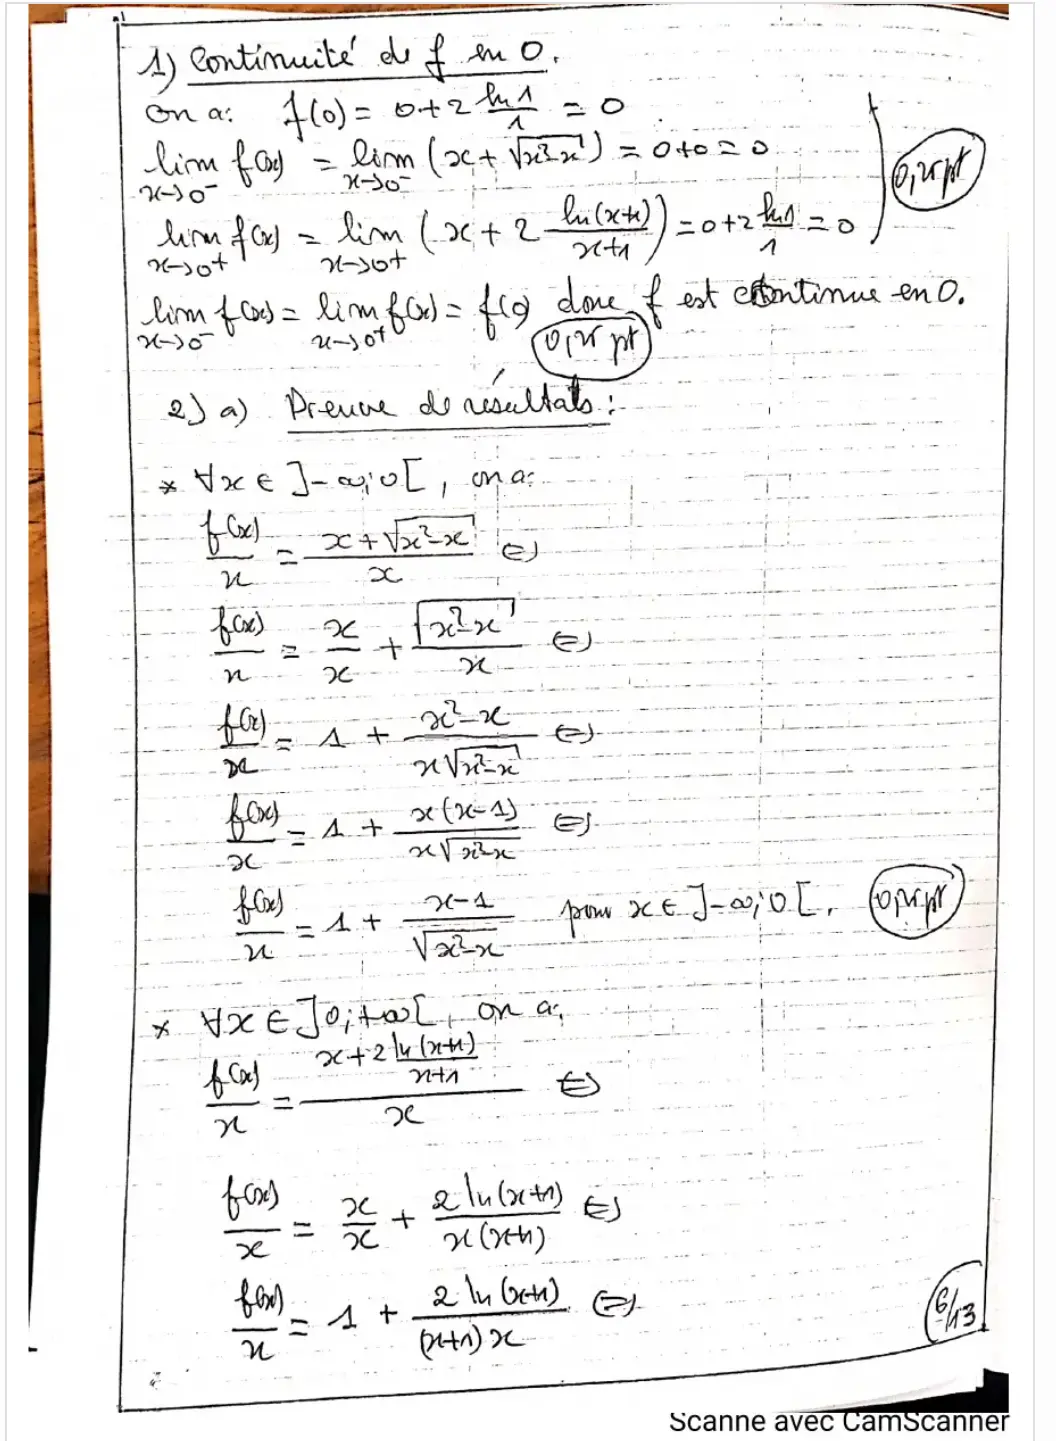 1) Continuité de f en 0.
On a: f(0) = 0+2 ln1/1 = 0
lim x→0⁻ f(x) = lim x→0⁻ (x + √(x²-x)) = 0+0 = 0
0,25 pt
lim x→0⁺ f(x) = lim x→0⁺ (x + 2 ln(x+1)/(x+1)) = 0+2 ln1/1 = 0
lim x→0⁻ f(x) = lim x→0⁺ f(x) = f(0) donc f est continue en 0.
0,25 pt
2) a) Preuve de résultats:
* ∀x ∈ ]-∞; 0[, on a:
f(x)/x = (x + √(x²-x))/x ⇔
f(x)/x = x/x + √(x²-x)/x ⇔
f(x)/x = 1 + (x²-x)/(x√(x²-x)) ⇔
f(x)/x = 1 + x(x-1)/(x√(x²-x)) ⇔
f(x)/x = 1 + (x-1)/√(x²-x) pour x ∈ ]-∞; 0[. 0,25 pt
* ∀x ∈ ]0; +∞[, on a:
f(x)/x = (x + 2 ln(x+1)/(x+1))/x ⇔
f(x)/x = x/x + 2 ln(x+1)/(x(x+1)) ⇔
f(x)/x = 1 + 2 ln(x+1)/((x+1)x) ⇔
6/13
Scanne avec CamScanner